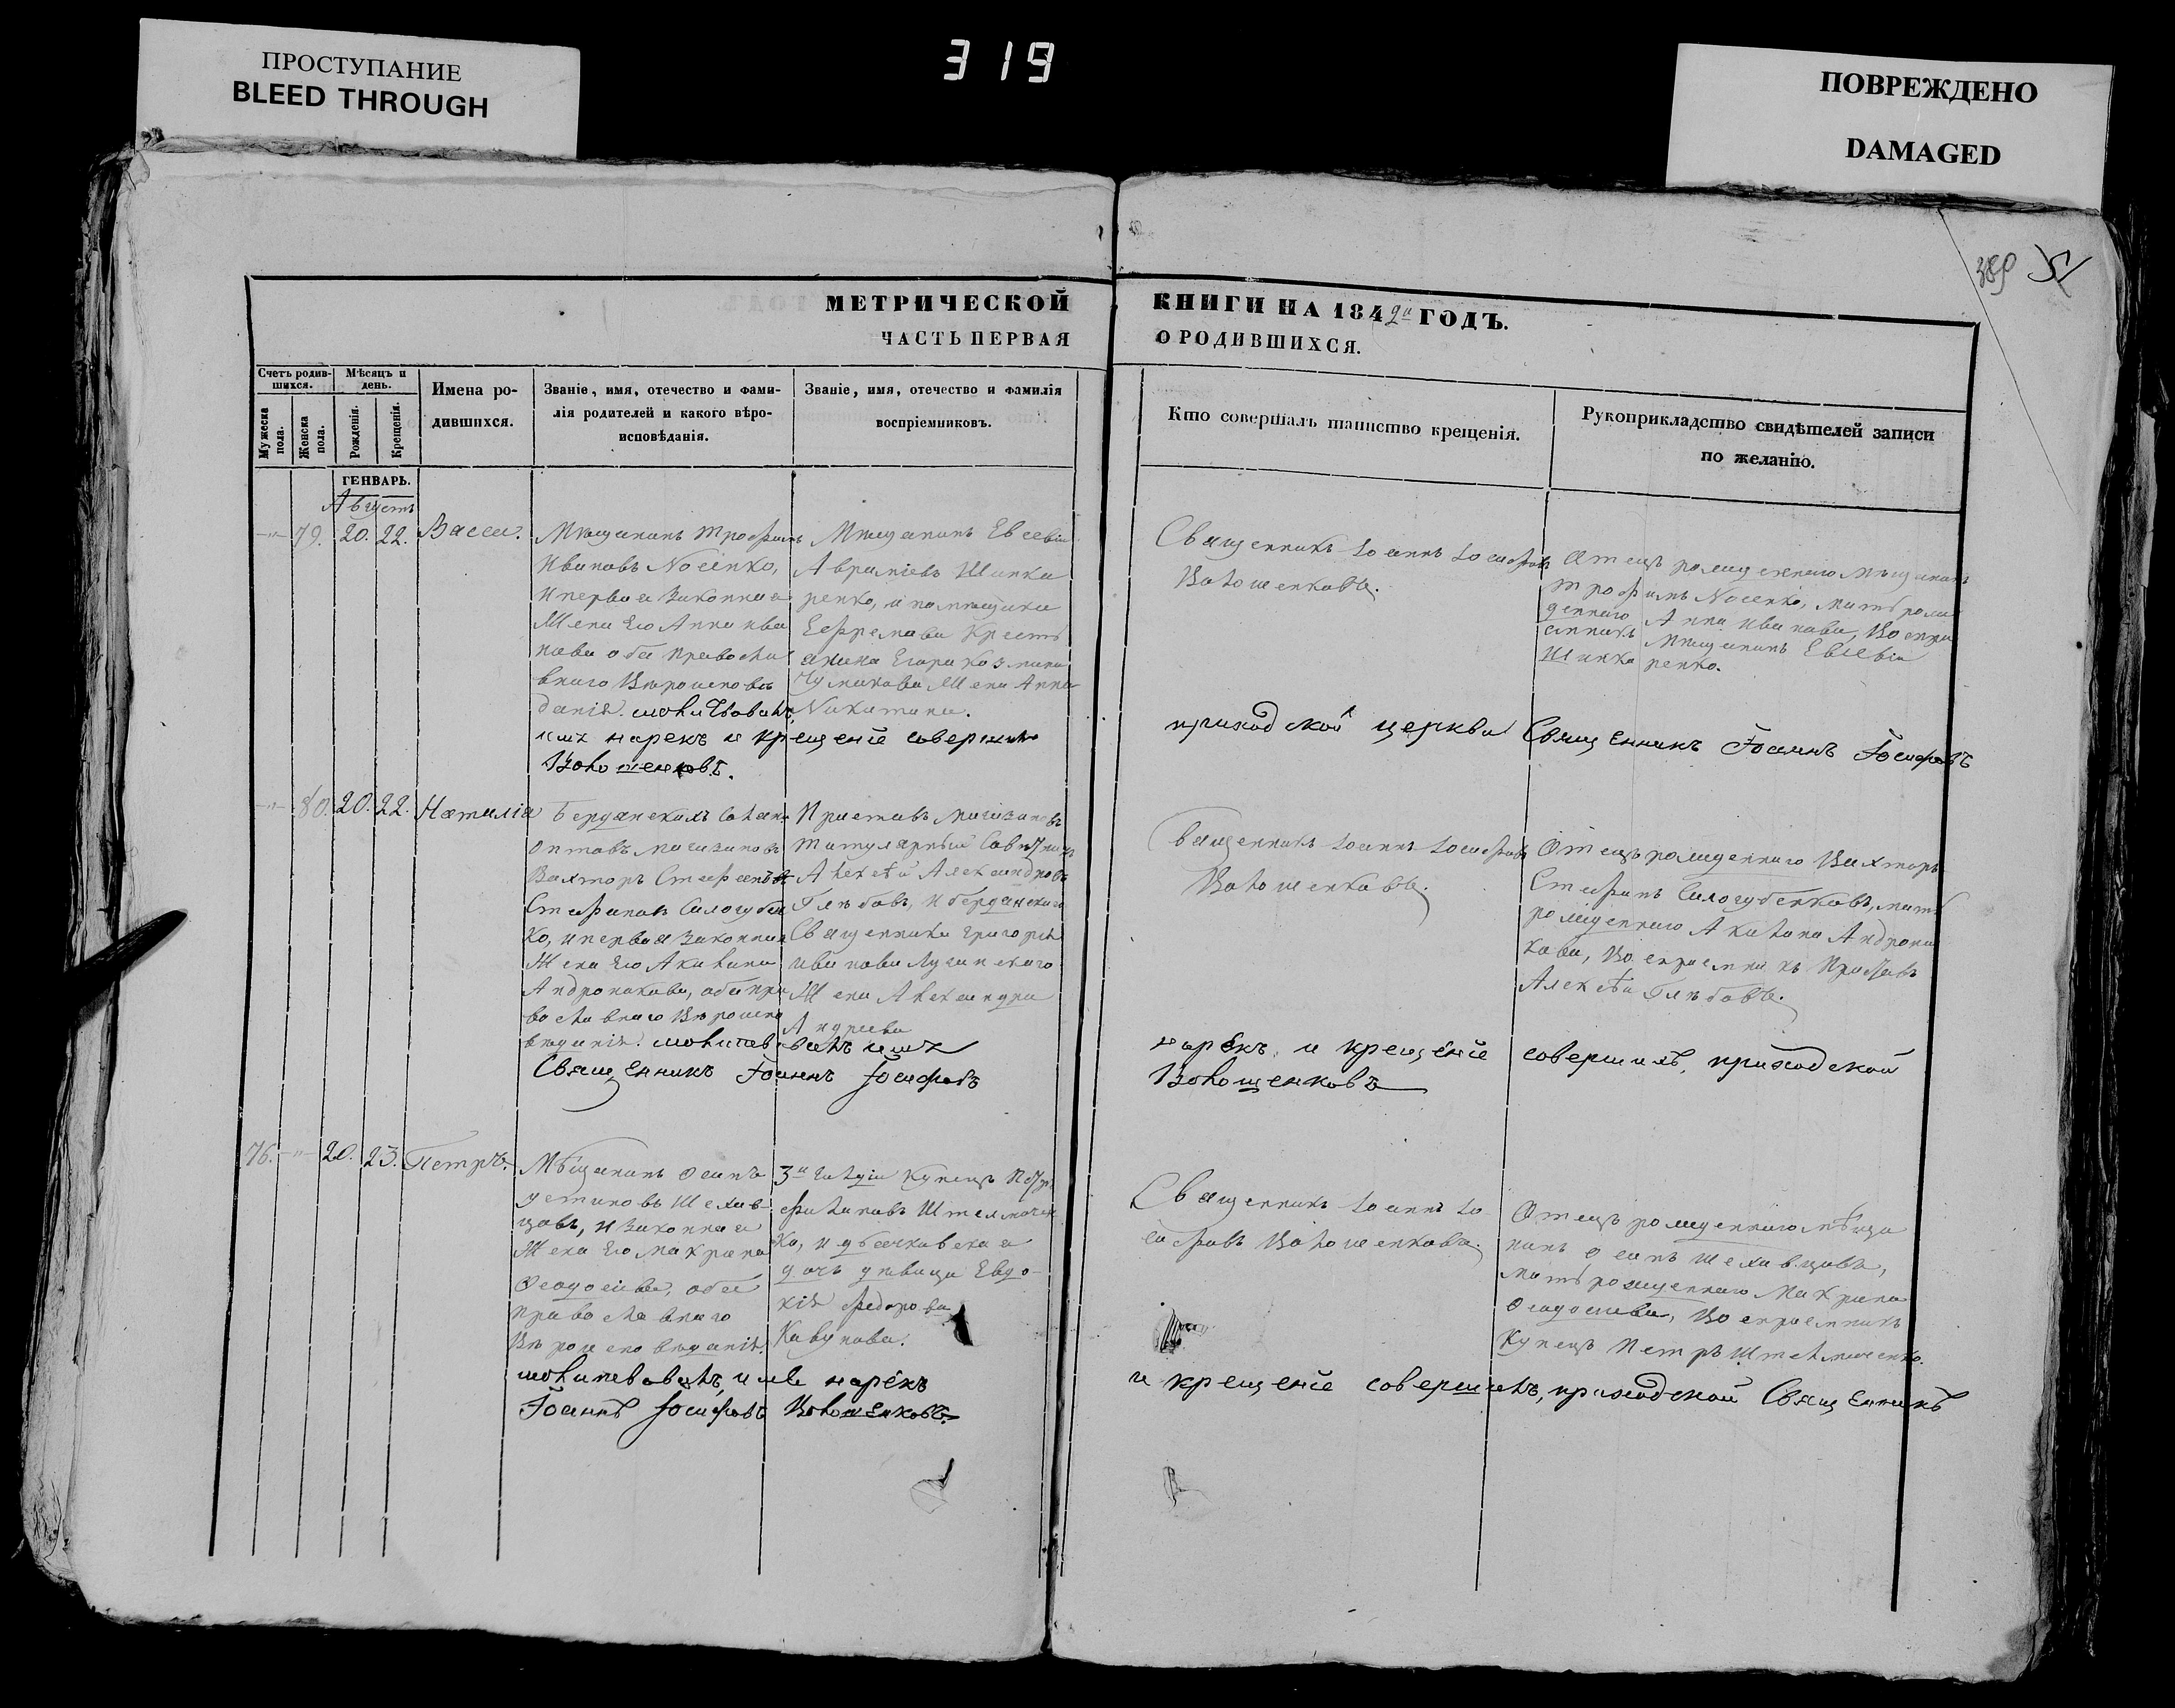 ПРОСТУПАНИЕ
BLEED THROUGH
319
ПОВРЕЖДЕНО
DAMAGED
389
МЕТРИЧЕСКОЙ КНИГИ НА 1842й ГОДЪ.
ЧАСТЬ ПЕРВАЯ О РОДИВШИХСЯ.
Счетъ родив-
шихся.
Мужеска
пола.
Женска
пола.
Мѣсяцъ и
день.
Рожденія.
Крещенія.
Имена ро-
дившихся.
Званіе, имя, отечество и фами-
лія родителей и какого вѣро-
исповѣданія.
Званіе, имя, отечество и фамилія
воспріемниковъ.
Кто совершалъ таинство крещенія.
Рукоприкладство свидѣтелей записи
по желанію.
ГЕНВАРЬ.
Августъ
-"- 79. 20. 22. Васса.
Мѣщанинъ Трофимъ
Ивановъ Носенко,
и первая законная
Жена Его Анна Ива
нова оба православ
внаго Вѣроисповѣ
данія. молитвовалъ,
имя нарекъ и крещеніе совершилъ
Волошенковъ.
Мѣщанинъ Евсевій
Авраміевъ Шинка
ренко, и помѣщика
Ефремова Крестъ
янина Егора Козмина
Чумакова Жена Анна
Никитина.
Священникъ Іоаннъ Іосифовъ
Волошенковъ.
Отецъ рожденнаго Мѣщанинъ
Трофимъ Носенко, мать рож
деннаго Анна Иванова, Воспри
емникъ Мѣщанинъ Евсевій
Шинкаренко.
приходской церкви Священникъ Іоаннъ Іосифовъ
-"- 80. 20. 22. Наталія
Берданскихъ Солян-
онтовъ магазиновъ
Вахторъ Стефанъ
Стефановъ Салогубен
ко, и первая законная
Жена Его Акилина
Андроникова, оба пра
вославнаго Вѣроиспо
вѣданія. молитвовалъ имя
Священникъ Іоаннъ Іосифовъ
Приставъ магазиновъ
титулярный Совѣтникъ
Алексѣй Александровъ
Глѣбовъ, и берданскаго
Священника Григорія
Иванова Лушинскаго
Жена Александра
Андреева
Священникъ Іоаннъ Іосифовъ
Волошенковъ.
Отецъ рожденнаго Вахторъ
Стефанъ Салогубенковъ, мать
рожденнаго Акилина Андрони
кова, Воспріемникъ Приставъ
Алексѣй Глѣбовъ.
нарекъ, и крещеніе совершилъ, приходской
Волошенковъ
76. -"- 20. 23. Петръ.
Мѣщанинъ Осипъ
Устиновъ Шехав-
цовъ, и законная
Жена Его Макрина
Феодосіева, оба
православнаго
Вѣроисповѣданія.
молитвовалъ, имя нарекъ
Іоаннъ Іосифовъ Волошенковъ.
3й гильдіи Купецъ Петръ
Филиповъ Штелмачен
ко, и дьячковская
дочь дѣвица Евдо-
кія Федорова
Кавунова.
Священникъ Іоаннъ Іо
сифовъ Волошенковъ.
Отецъ рожденнаго мѣща
нинъ Осипъ Шехавцовъ,
мать рожденнаго Макрина
Феодосіева, Воспріемникъ
Купецъ Петръ Штелмаченко.
и крещеніе совершилъ, приходской Священникъ